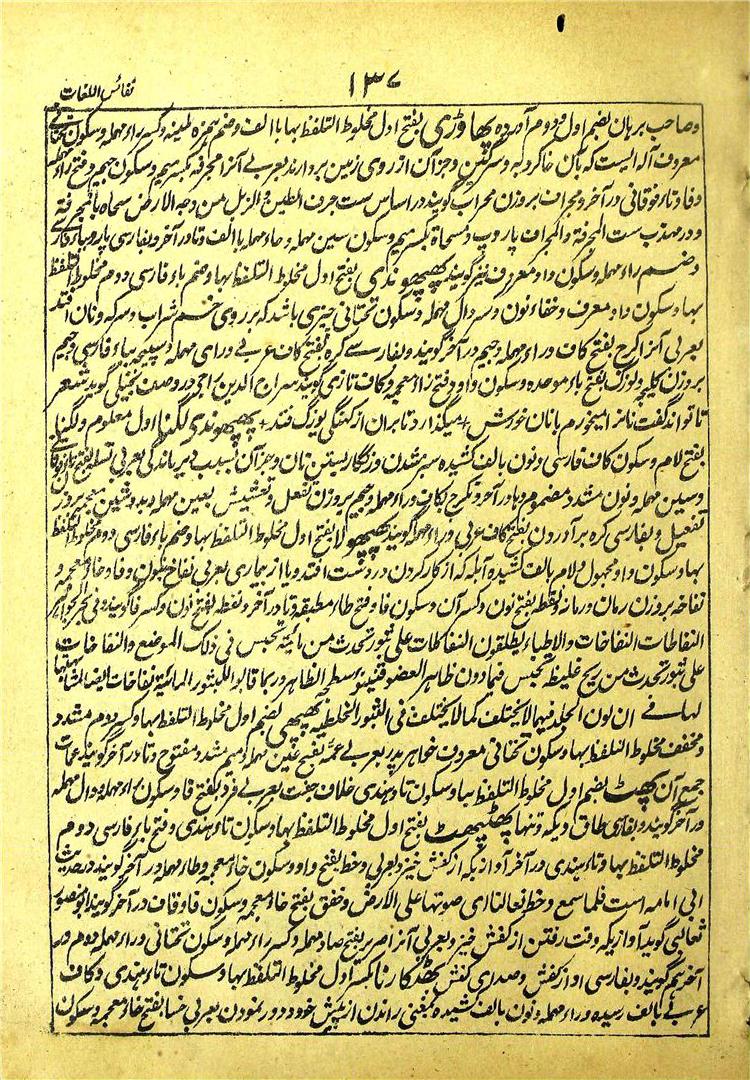 نفائس اللغات
۱۳۷
وصاحب برهان بضم اول و دوم آورده پھاوڑی بفتح اول مخلوط التلفظ بہا با الف وضم ہمزہ ملینہ وکسر راء مہملہ وسکون
معروف آلہ ایست کہ بآن خاکروبہ و سرگین وجز آن از روی زمین بردارند بعربی آنرا مجرفہ بکسر میم وسکون جیم وفتح راء مہملہ
وفا وتاء فوقانی در آخر ومجراف بر وزن محراب گویند در اساس ست جرف الطین والزبل من وجہ الارض سحاہ بالمجرفة
ودر مہذب ست المجرفة والمجراف پاروپ ومسحاة بکسر میم وسکون سین مہملہ وحاء مہملہ با الف وتا در آخر وبفارسی پاروب
وضم راء مہملہ وسکون واو معروف نیز گویند پھپھوندی بفتح اول مخلوط التلفظ بہا وضم باء فارسی دوم مخلوط التلفظ
بہا وسکون واو معروف وخفاء نون و کسر دال مہملہ وسکون تحتانی چیزی باشد کہ بر روی خم شراب وسرکہ ونان افتد
بعربی آنرا کرج بفتح کاف وراء مہملہ وجیم در آخر گویند وبفارسے کرہ بفتح کاف عربے وراء مہملہ
بر وزن کلیچہ و بوزک بفتح باء موحدہ وسکون واو وفتح زاء معجمہ وکاف تازی گویند سراج الدین راجی در وصف بخیلی گوید شعر
تا تواند گفت نانرا میخورم با نان خورش + میگذارد تا بران از کہنگی بوزک فتد + پھپھوندی لگنا اول معلوم ولگنا
بفتح لام وسکون کاف فارسی ونون بالف کشیدہ سبز شدن و زنگار بستن نان وجز آن بسبب دیر ماندگی بعربی
وسین مہملہ ونون مشدد مضموم وہا در آخر وتکرج بکاف وراء مہملہ وجیم بر وزن تفعل وتعشیش بعین مہملہ ودو شین معجمہ بر وزن
تفعیل وبفارسی کرہ برآوردن بفتح کاف عربی وراء مہملہ گویند پھپھولا بفتح اول مخلوط التلفظ بہا وضم باء فارسی دوم مخلوط التلفظ
بہا وسکون واو مجہول ولام بالف کشیدہ آبلہ کہ از کار کردن در دست افتد ویا از بیماری بعربی نفاخ بنون وفا وخاء معجمہ و
نفاخہ بر وزن رمان ورمانہ ونفطہ بفتح نون وکسر آن وسکون فا وفتح طاء مطبقہ وتا در آخر ونفطہ بفتح نون وکسر فا گویند وفی بحر الجواہر
النفاطات النفاخات والاطباء یطلقون النفاطات علی بثور تحدث من مائیة تحبس فی ذلک الموضع والنفاخات
علی بثور تحدث من ریح غلیظ تحبس فیما دون ظاہر العضو سطح الظاہر وربما قالوا للبثور المائیة نفاخات ایضا لمشابہتہا
لہا فے ان لون الجلد فیہما لا یختلف کما لا یختلف فی البثور الخلطیة پھپھی بضم اول مخلوط التلفظ بہا وکسر دوم مشدد
ومخفف مخلوط التلفظ بہا وسکون تحتانی معروف خواہر پدر بعربے عمّہ بفتح عین مہملہ ومیم مشدد ومفتوح وتا در آخر گویند عمات
جمع آن پھٹ بضم اول مخلوط التلفظ بہا وسکون تاء ہندی خلاف جفت بعربے فرد بفتح فا وسکون راء مہملہ ودال مہملہ
در آخر گویند وبفارسی طاق ویکہ وتنہا پھٹپھٹ بفتح اول مخلوط التلفظ بہا وسکون تاء ہندی وفتح باء فارسی دوم
مخلوط التلفظ بہا وتاء ہندی در آخر آوازیکہ از کفش خیزد بعربی وخط بفتح واو وسکون خاء معجمہ وطاء مہملہ در آخر گویند در حدیث
ابی امامہ است فلما سمع وخط نعالنا ای صوتہا علی الارض وخفق بفتح خاء معجمہ وسکون فا وقاف در آخر گویند ابو منصور
ثعالبی گوید آوازیکہ وقت رفتن از کفش خیزد بعربی آنرا صریر بفتح صاد مہملہ وکسر راء مہملہ وسکون تحتانی وراء مہملہ دوم در
آخر ہم گویند وبفارسی آواز کفش وصدای کفش پھٹکارنا بکسر اول مخلوط التلفظ بہا وسکون تاء ہندی وکاف
عربے بالف رسیدہ وراء مہملہ ونون بالف کشیدہ بمعنی راندن از پیش خود ودور نمودن بعربی خسأ بفتح خاء معجمہ وسکون